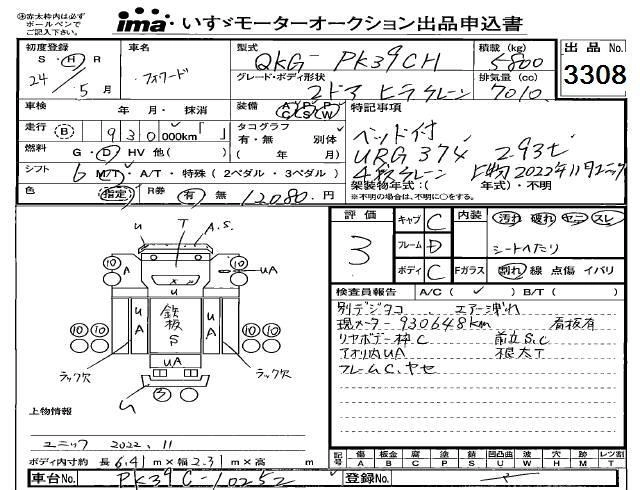 ※赤太枠内は必ず
ボールペンで
ご記入下さい。
ima・いすゞモーターオークション出品申込書
初度登録
S・H・R
24/5月
車名
フォワード
型式
QKG-PK39CH
積載(kg)
5800
出品No.
3308
グレード・ボディ形状
2ドア ヒラクレーン
排気量(cc)
7010
車検 年 月・抹消
装備 A/C P/S A/B P/W
特記事項
走行 B 930 000km「 」
タコグラフ
有・無 別体
( 年 月)
ベッド付
燃料 G・D・HV 他( )
URG374 2.93t
シフト 6 M/T・A/T・特殊(2ペダル・3ペダル)
4段クレーン 上物2022年11月ユニック
色 指定 R券 有 無 12080.円
架装物年式:( 年式)・不明
※不明の場合は、不明に○をする。
評価
3
キャブ C
フレーム D
ボディ C
内装 汚れ 破れ ヤニ スレ
シートへたり
Fガラス 割れ 線 点傷 イバリ
検査員報告 A/C( ✓ ) B/T( )
別デジタコ エアー洩れ
現メーター930648km 看板有
リヤボデー枠C 前立S,C
アオリ内UA 根太T
フレームC、ヤセ
u T A.S.
10 A 10 uA
u
u A 鉄板S u A
10 10 10 10
uA
ラック欠 ラック欠
3
上物情報
ユニック 2022.11
ボディ内寸約 長6.41m×幅2.31m×高 m
記号 傷A 板金B 腐C 塗P 錆S 凹凸曲U 波W 穴H 跡M レツ割T
車台No. PK39C-10252
登録No.